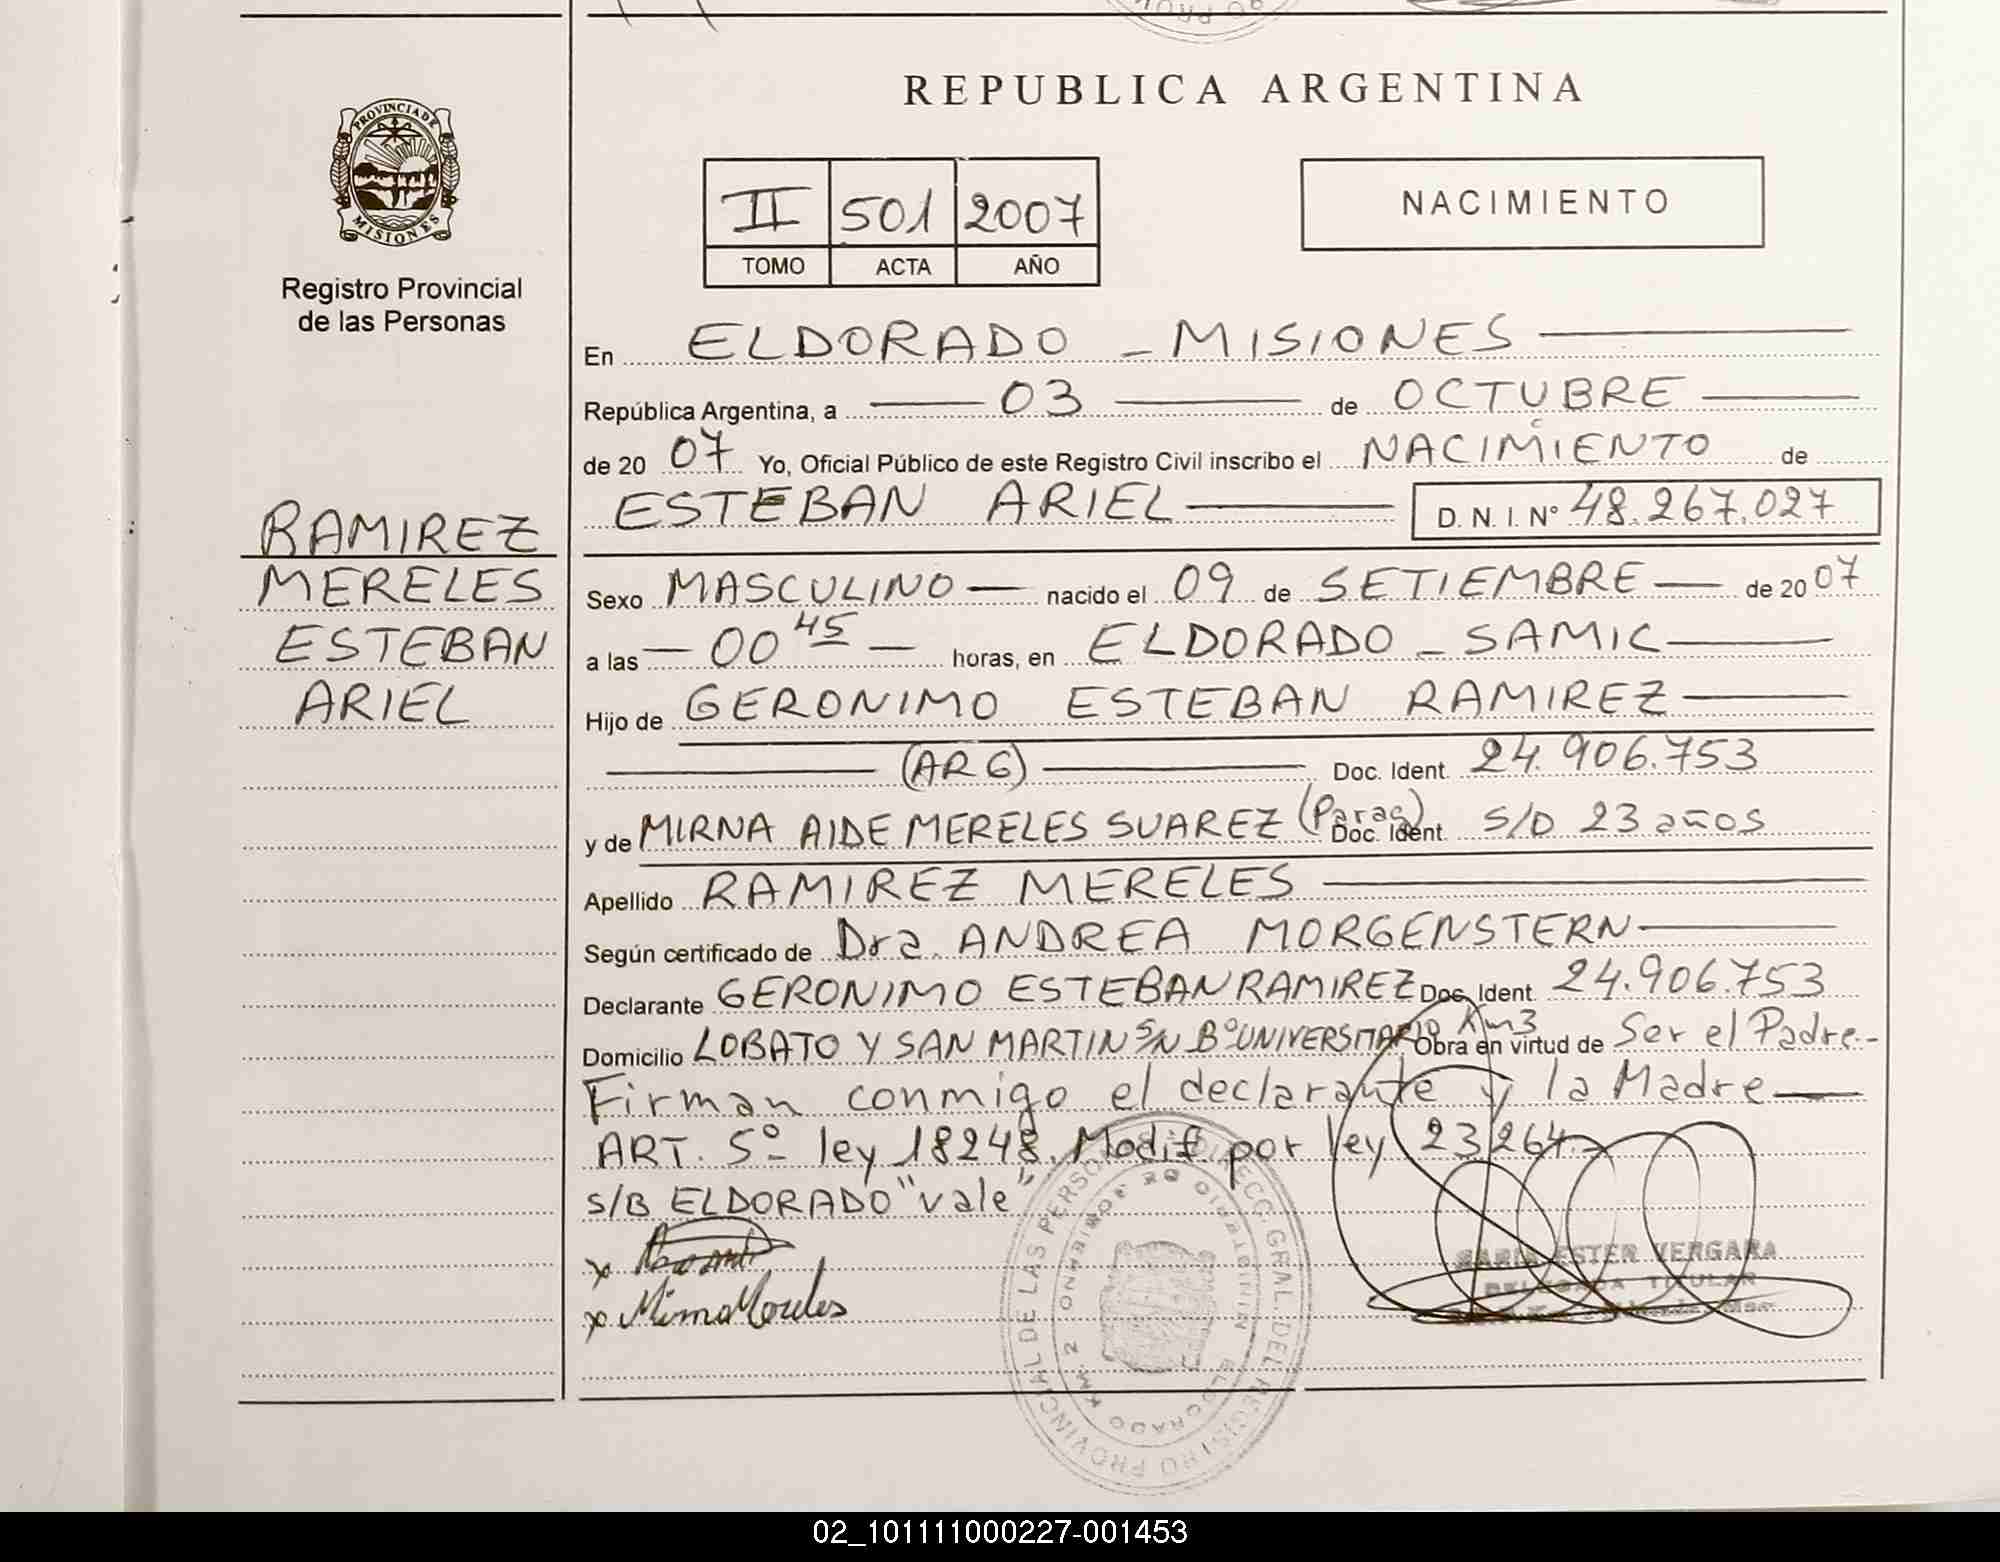 REPUBLICA ARGENTINA
PROVINCIA DE
MISIONES
Registro Provincial
de las Personas
II 501 2007
TOMO ACTA AÑO
NACIMIENTO
En ELDORADO - MISIONES
República Argentina, a 03 de OCTUBRE
de 20 07 Yo, Oficial Público de este Registro Civil inscribo el NACIMIENTO de
ESTEBAN ARIEL D. N. I. N° 48.267.027
RAMIREZ
MERELES
ESTEBAN
ARIEL
Sexo MASCULINO nacido el 09 de SETIEMBRE de 20 07
a las 00 45 horas, en ELDORADO - SAMIC
Hijo de GERONIMO ESTEBAN RAMIREZ
(ARG) Doc. Ident. 24.906.753
y de MIRNA AIDE MERELES SUAREZ (Parag) Doc. Ident. S/D 23 años
Apellido RAMIREZ MERELES
Según certificado de Dra. ANDREA MORGENSTERN
Declarante GERONIMO ESTEBAN RAMIREZ Doc. Ident. 24.906.753
Domicilio LOBATO Y SAN MARTIN S/N B° UNIVERSITARIO Km3 Obra en virtud de Ser el Padre.-
Firman conmigo el declarante y la Madre
ART. 5º ley 18248. Modif por ley 23264.-
S/B ELDORADO "vale"
x
x Mirna Mereles
MARIA ESTER VERGARA
DELEGADA TITULAR
DIRECC. GRAL. DEL REGISTRO PROVINCIAL DE LAS PERSONAS
ELDORADO KM. 2
02_101111000227-001453